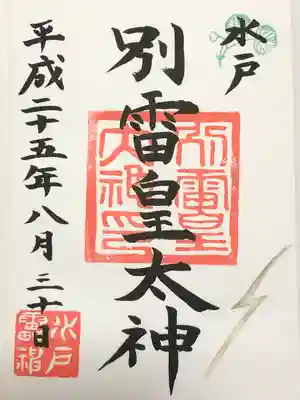 水戸
別雷皇太神
別雷皇太神印
平成二十五年八月三十日
水戸雷神